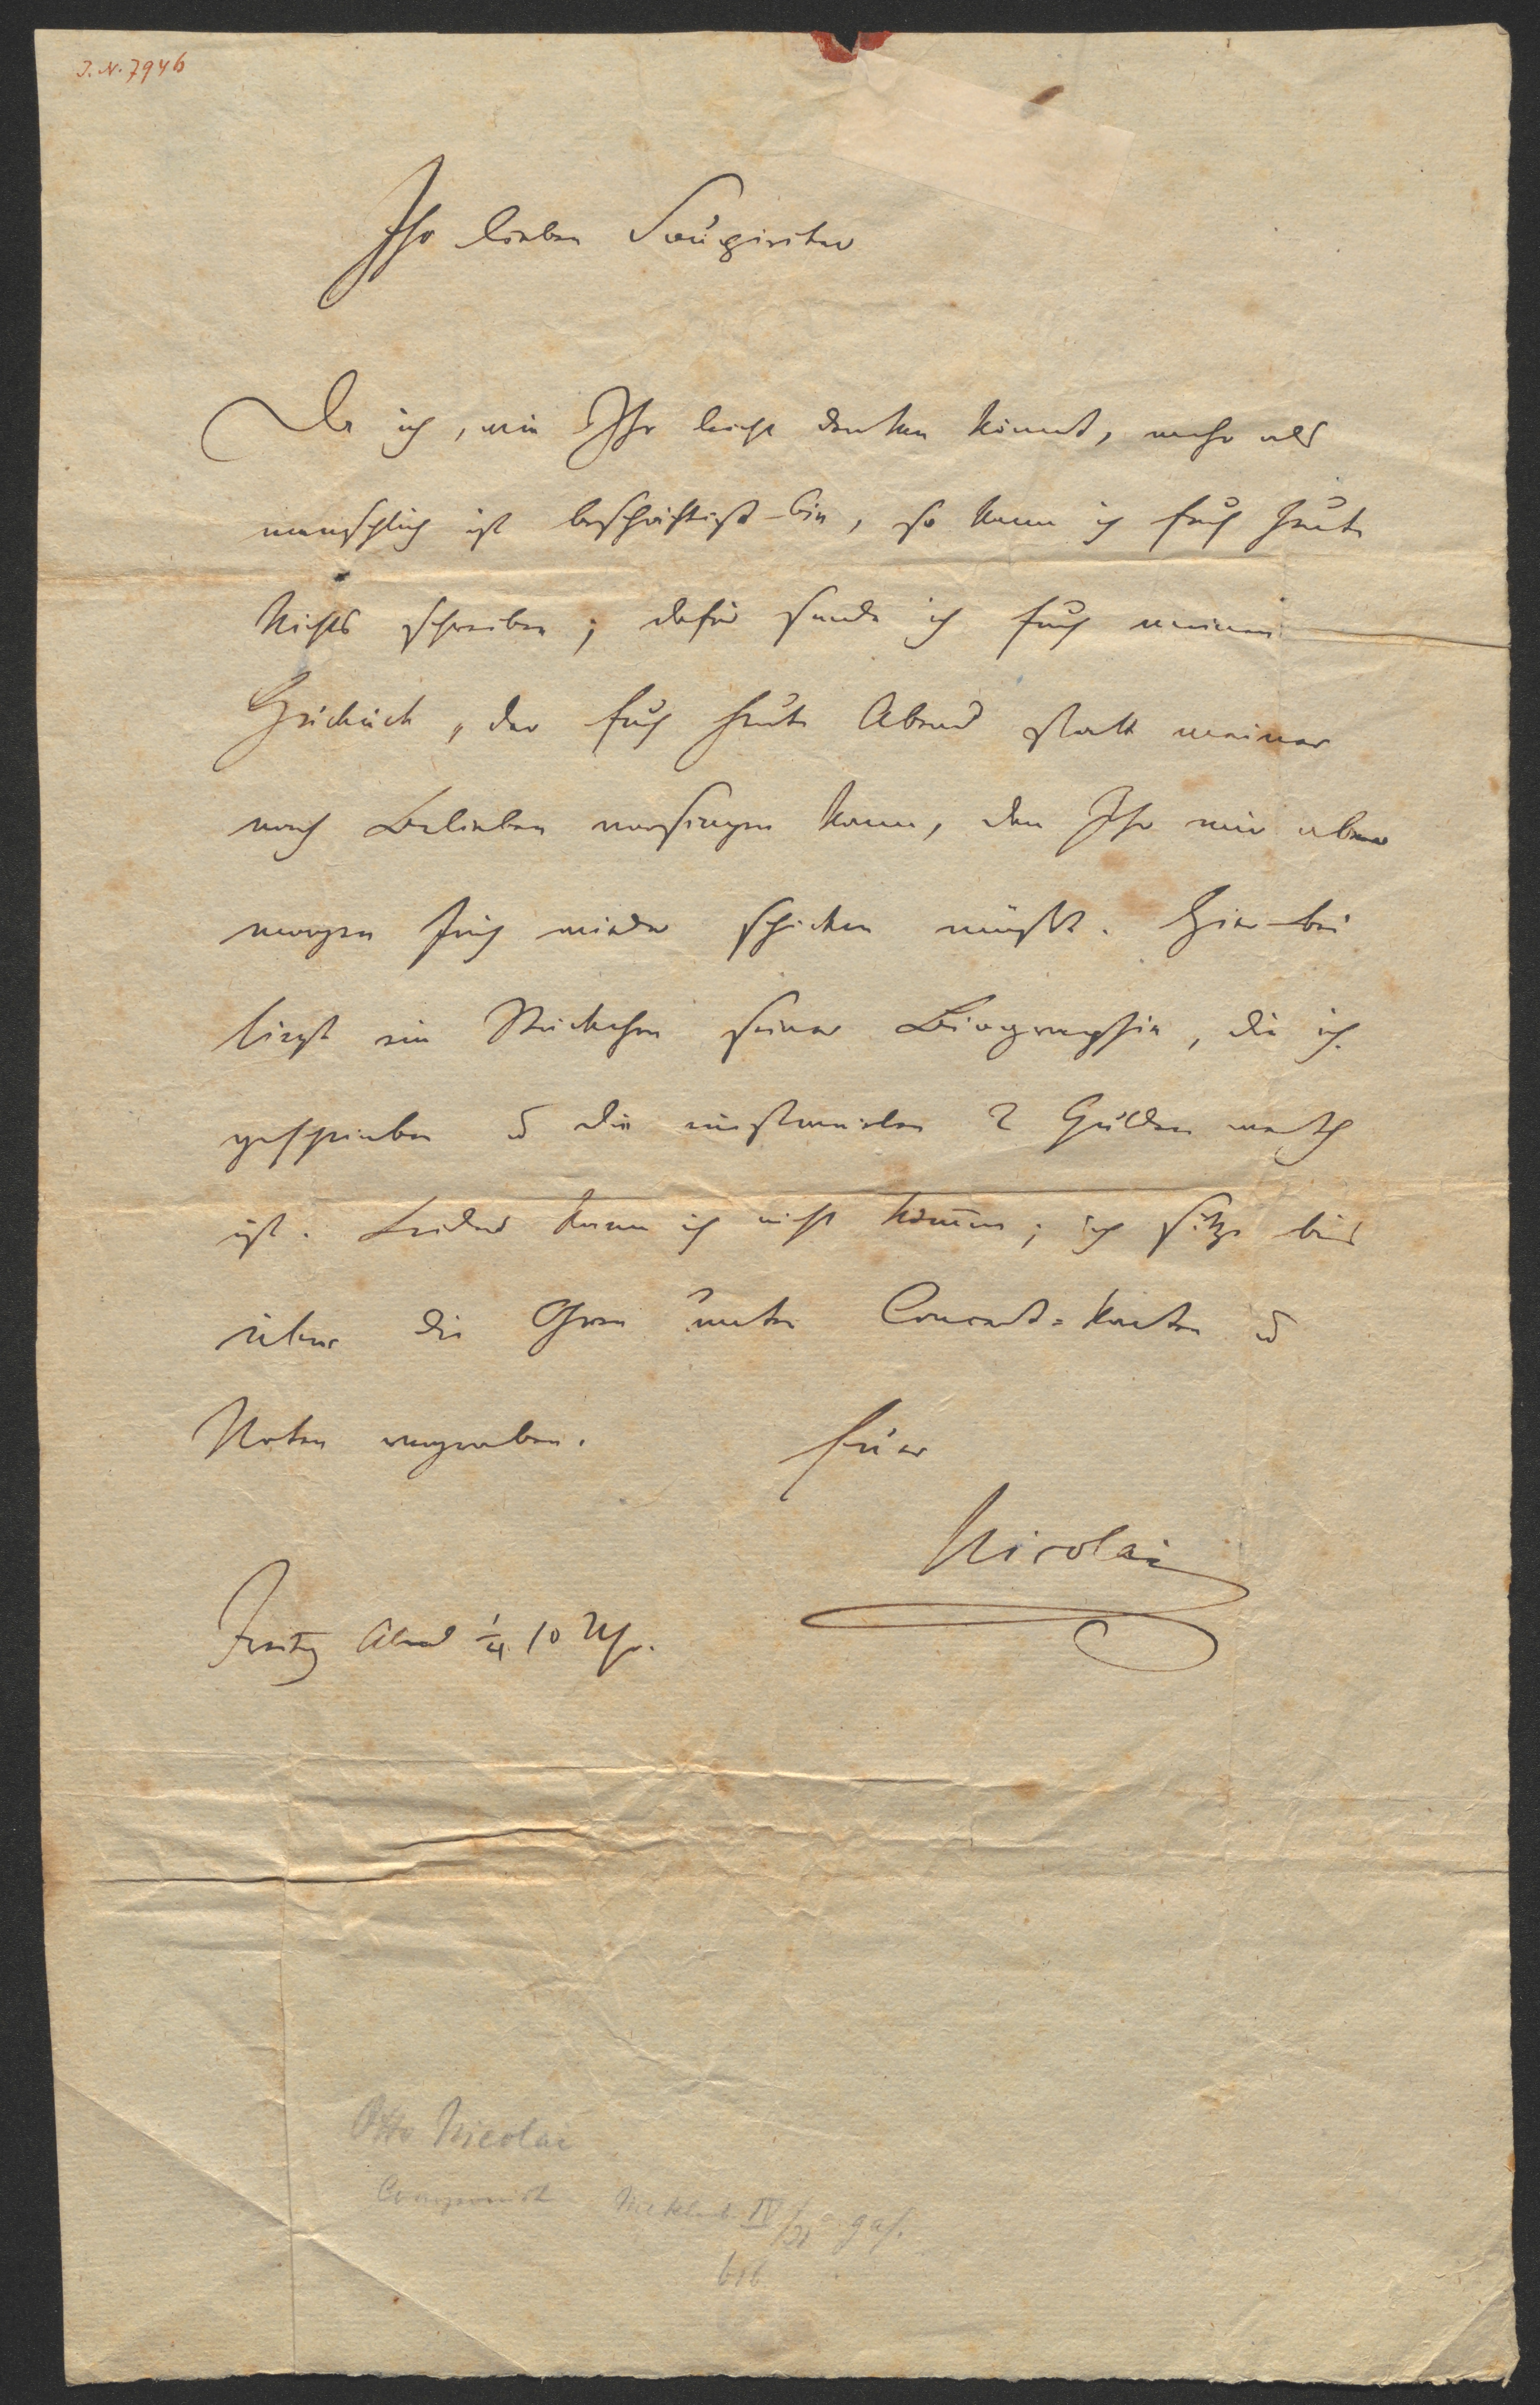 J.N. 7946
Ihr lieben
Da ich, wie Ihr leicht denken könnt, mehr als
menschlich ist beschäftigt bin, so kann ich Euch heute
Nichts schreiben; dafür sende ich Euch meinen
der Euch heute Abend statt meiner
nach Belieben vorsingen kann, den Ihr mir aber
morgen früh wieder schicken müßt. Hier bei
liegt ein Stückchen seiner Biographie, die ich
geschrieben u die einstweilen 2 Gulden werth
ist. Leider kann ich nicht kom̄en; ich sitze bis
über die Ohren unter Concert=Karten u
Noten vergraben. Euer
Nicolai
Freitag Abend ¼ 10 Uhr.
Otto Nicolai
Componist